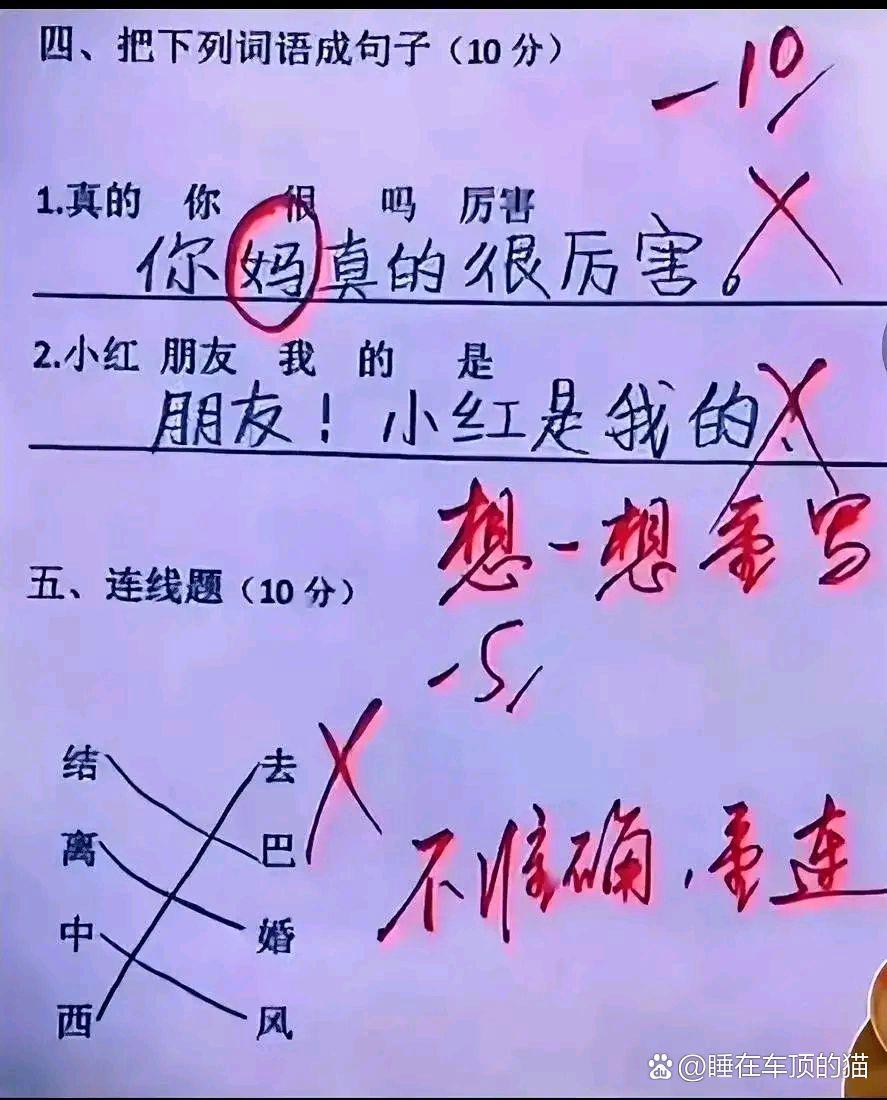 四、把下列词语成句子（10 分）
-10
1.真的 你 很 吗 厉害
你妈真的很厉害。
2.小红 朋友 我 的 是
朋友！小红是我的.
想一想重写
五、连线题（10 分）
-5
结 去
离 巴
中 婚
西 风
不准确，重连
@睡在车顶的猫